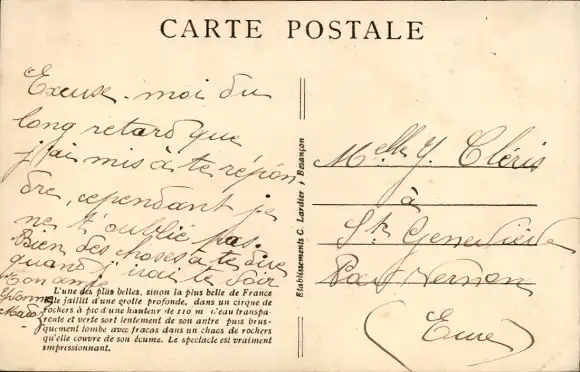 CARTE POSTALE
Excuse-moi du
long retard que
j'ai mis à te répon
dre, cependant je
ne t'oublie pas.
Bien des choses à te dire
quand j'irai te voir
Ton amie
L'une des plus belles, sinon la plus belle de France
elle jaillit d'une grotte profonde, dans un cirque de
rochers à pic d'une hauteur de 110 m L'eau transpa-
reate et verte sort lentement de son antre puis brus-
quement tombe avec fracas dans un chaos de rochers
qu'elle couvre de son écume. Le spectacle est vraiment
impressionnant.
Etablissements C. Lardier, Besançon
Melle Y. Cléris
à
Ste Geneviève
Port Vernon
(Eure)